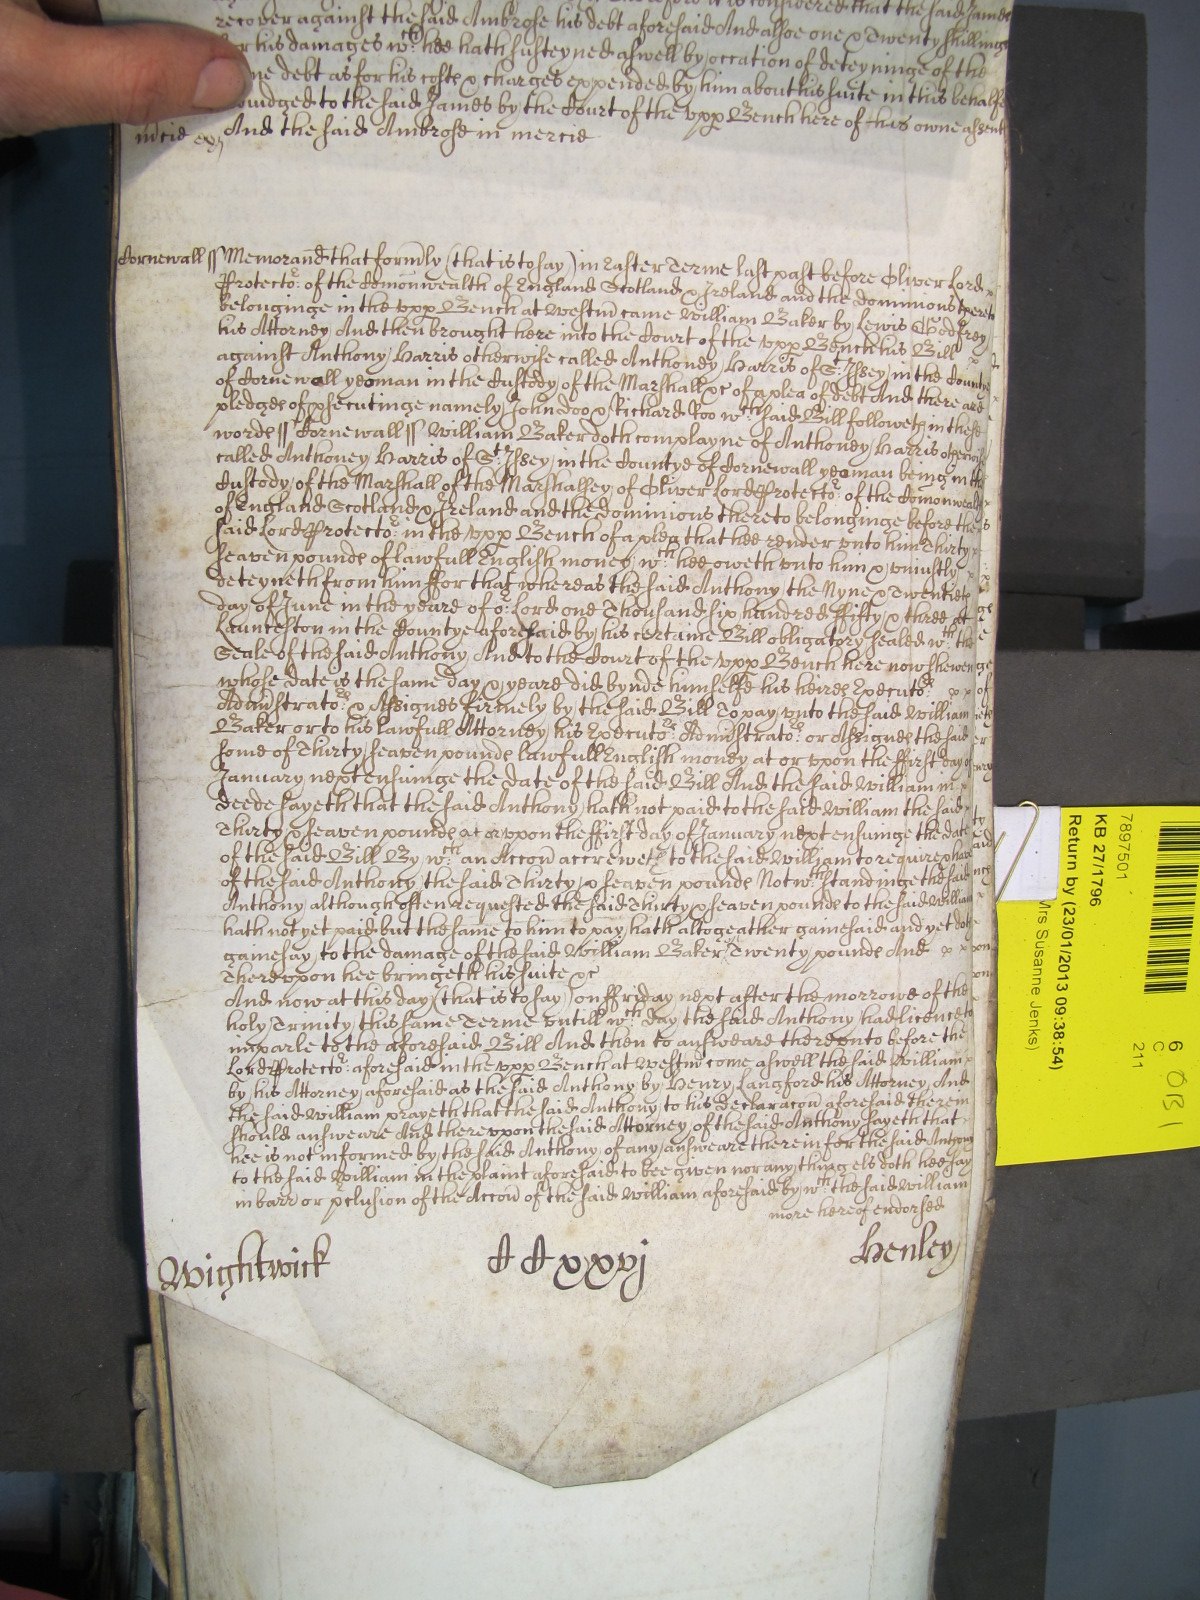 recover against the said Ambrose his debt aforesaid And alsoe one & Twenty shillings
for his damages wch hee hath susteyned aswell by occation of deteyninge of the
same debt as for his costs & charges expended by him about his suite in this behalfe
adiudged to the said James by the Court of the vpp Bench here of his owne assent
And the said Ambrose in mercie
Cornewall ss Memorand that formly (that is to say) in Easter Terme last past before Oliver Lord
Protector of the Comonwealth of England Scotland & Ireland and the dominions thereto
belonginge in the vpp Bench at Westm came William Baker by Lewis Godfrey
his Attorney And then brought here into the Court of the vpp Bench his Bill
against Anthony Harris otherwise called Anthoney Harris of St Issey in the Countye
of Cornewall yeoman in the Custody of the Marshall &c of a plea of debt And there are
pledges of psecutinge namely John Doo & Richard Roo wch said Bill followeth in these
words ss Cornewall ss William Baker doth complayne of Anthoney Harris otherwise
called Anthoney Harris of St Issey in the Countye of Cornewall yeoman being in the
Custody of the Marshall of the Marshalsey of Oliver Lord Protector of the Comonwealth
of England Scotland & Ireland and the dominions thereto belonginge before the
said Lord Protector in the vpp Bench of a plea that hee render vnto him Thirty
seaven pounds of lawfull English money wch hee oweth vnto him & vniustly
deteyneth from him ffor that whereas the said Anthony the Nyne & Twentieth
day of June in the yeare of or Lord one Thousand six hundred ffifty & three at
Launceston in the Countye aforesaid by his certaine Bill obligatory sealed wth the
Seale of the said Anthony And to the Court of the vpp Bench here now shewen
whose date is the same day & yeare did bynde himselfe his heires Executors
Administrators & Assignes firmely by the said Bill To pay vnto the said William
Baker or to his lawfull Attorney his Executors Administrators or Assignes the said
some of Thirty seaven pounds lawfull English money at or vpon the ffirst day of
January next ensuinge the date of the said Bill And the said William in
deede sayeth that the said Anthony hath not paid to the said William the said
Thirty & seaven pounds at or vppon the ffirst day of January next ensuinge the date
of the said Bill By wch an Accon accreweth to the said William to require & have
of the said Anthony the said Thirty & seaven pounds Notwthstandinge the said
Anthony although often requested the said Thirty & seaven pounds to the said William
hath not yet paid but the same to him to pay hath altogeather gainesaid and yet doth
gainesay to the damage of the said William Baker Twenty pounds And
Therevpon hee bringeth his suite &c
And now at this day (that is to say) on ffriday next after the morrowe of the
holy Trinity this same Terme vntill wch day the said Anthony had licence to
imparle to the aforesaid Bill And then to answeare therevnto before the
Lord Protector aforesaid in the vpp Bench at Westm come aswell the said William
by his Attorney aforesaid as the said Anthony by Henry Langford his Attorney And
the said William prayeth that the said Anthony to his Declaracon aforesaid therein
should answeare And therevpon the said Attorney of the said Anthony sayeth that
hee is not informed by the said Anthony of any answeare therein for the said Anthony
to the said William in the plaint aforesaid to bee given nor any thing els doth hee say
in barr or pclusion of the Accon of the said William aforesaid by wch the said William
more hereof endorsed
Wightwick
xxvj
Henley
7897501
KB 27/1796
Return by (23/01/2013 09:38:54)
Mrs Susanne Jenks)
6
C
211